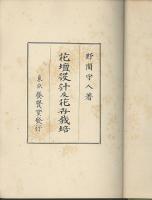 野間守人著
花壇設計及花卉栽培
東京 養賢堂發行